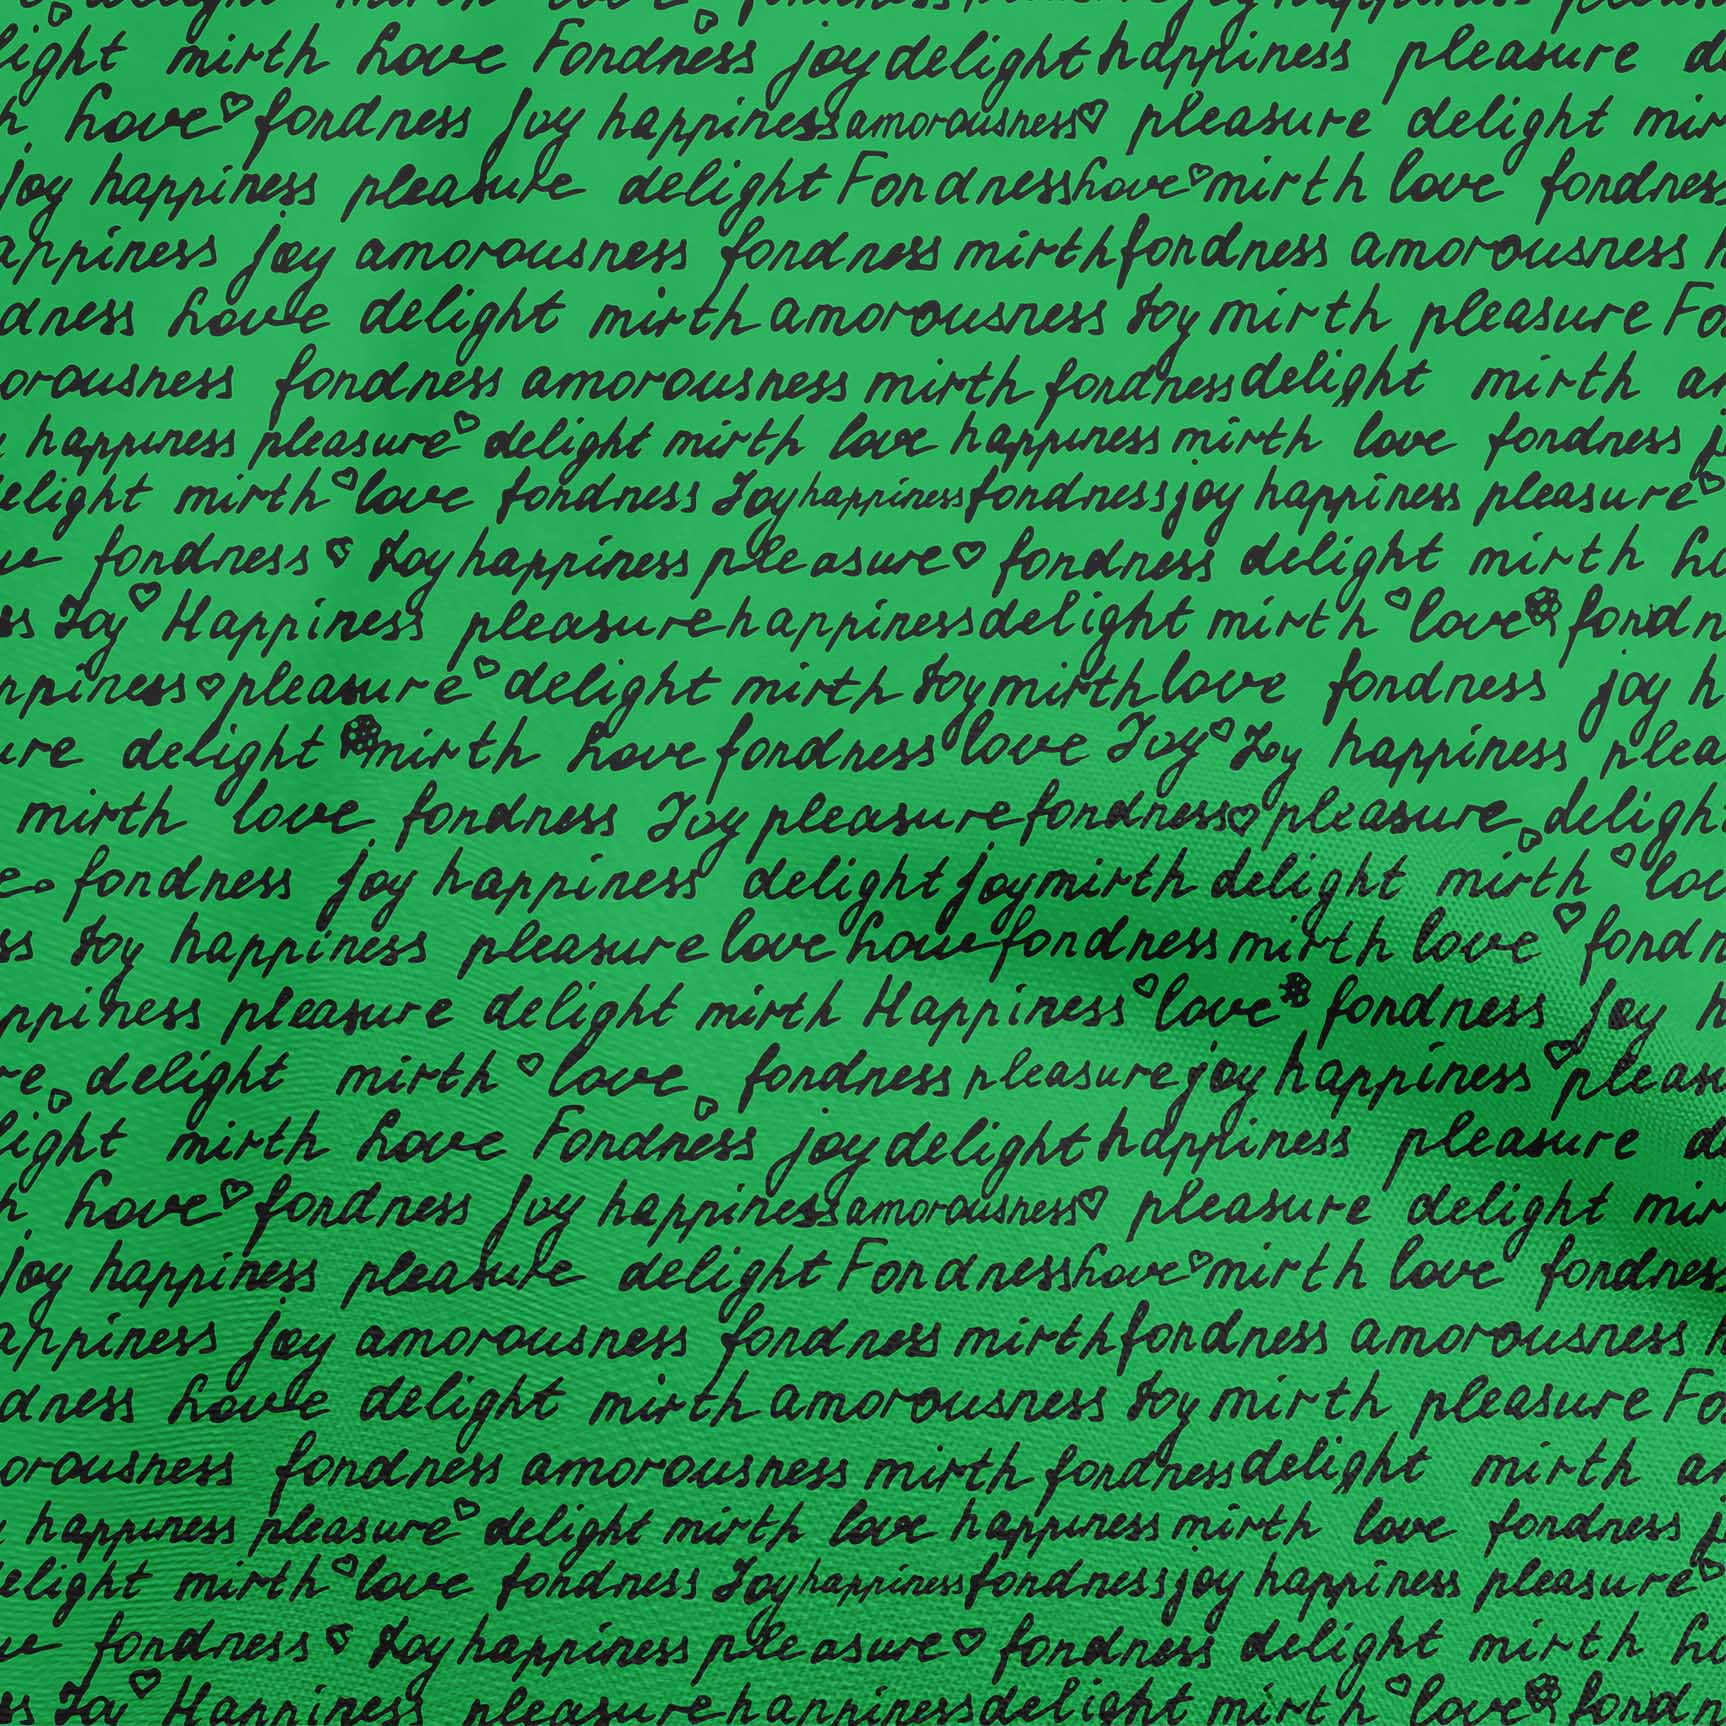 delight mirth love fondness happiness
light mirth Love Fondness joy delight happiness pleasure de
h Love fondness Joy happiness amorousness pleasure delight mir
joy happiness pleasure delight Fondness Love mirth love fondness
appiness joy amorousness fondness mirth fondness amorousness h
dness Love delight mirth amorousness Joy mirth pleasure Fo
orousness fondness amorousness mirth fondness delight mirth am
happiness pleasure delight mirth love happiness mirth love fondness j
elight mirth love fondness Joy happiness fondness joy happiness pleasure
ve fondness Joy happiness pleasure fondness delight mirth Lo
ss Joy Happiness pleasure happiness delight mirth love fondn
ppiness pleasure delight mirth Joy mirth love fondness joy h
ure delight mirth Love fondness love Joy Joy happiness plea
mirth love fondness Joy pleasure fondness pleasure delight
e fondness joy happiness delight joy mirth delight mirth lov
ss Joy happiness pleasure love Love fondness mirth love fondn
ppiness pleasure delight mirth Happiness love fondness Joy h
re delight mirth love fondness pleasure joy happiness pleasu
light mirth Love Fondness joy delight happiness pleasure de
h Love fondness Joy happiness amorousness pleasure delight mir
joy happiness pleasure delight Fondness Love mirth love fondness
appiness joy amorousness fondness mirth fondness amorousness h
dness Love delight mirth amorousness Joy mirth pleasure Fo
orousness fondness amorousness mirth fondness delight mirth am
happiness pleasure delight mirth love happiness mirth love fondness j
elight mirth love fondness Joy happiness fondness joy happiness pleasure
ve fondness Joy happiness pleasure fondness delight mirth Lo
ss Joy Happiness pleasure happiness delight mirth love fondn